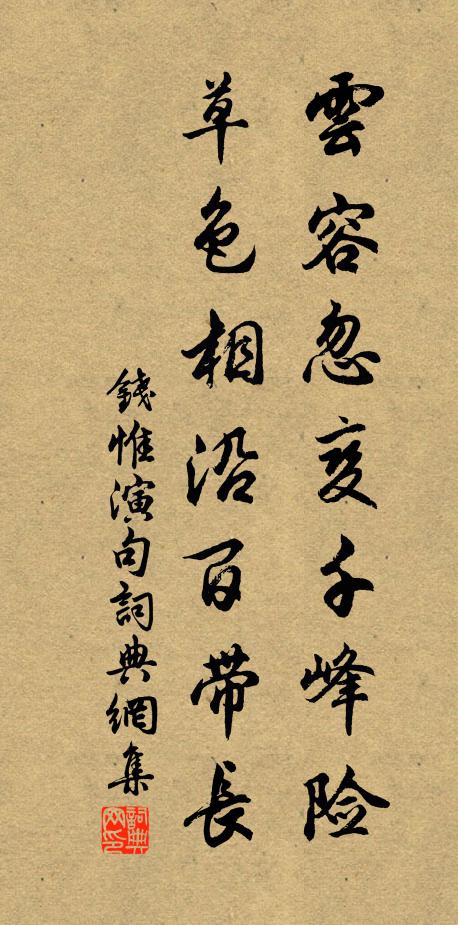 雲容忽变千峰险
草色相沿百带長
錢惟演句詞典網集
詞典网印